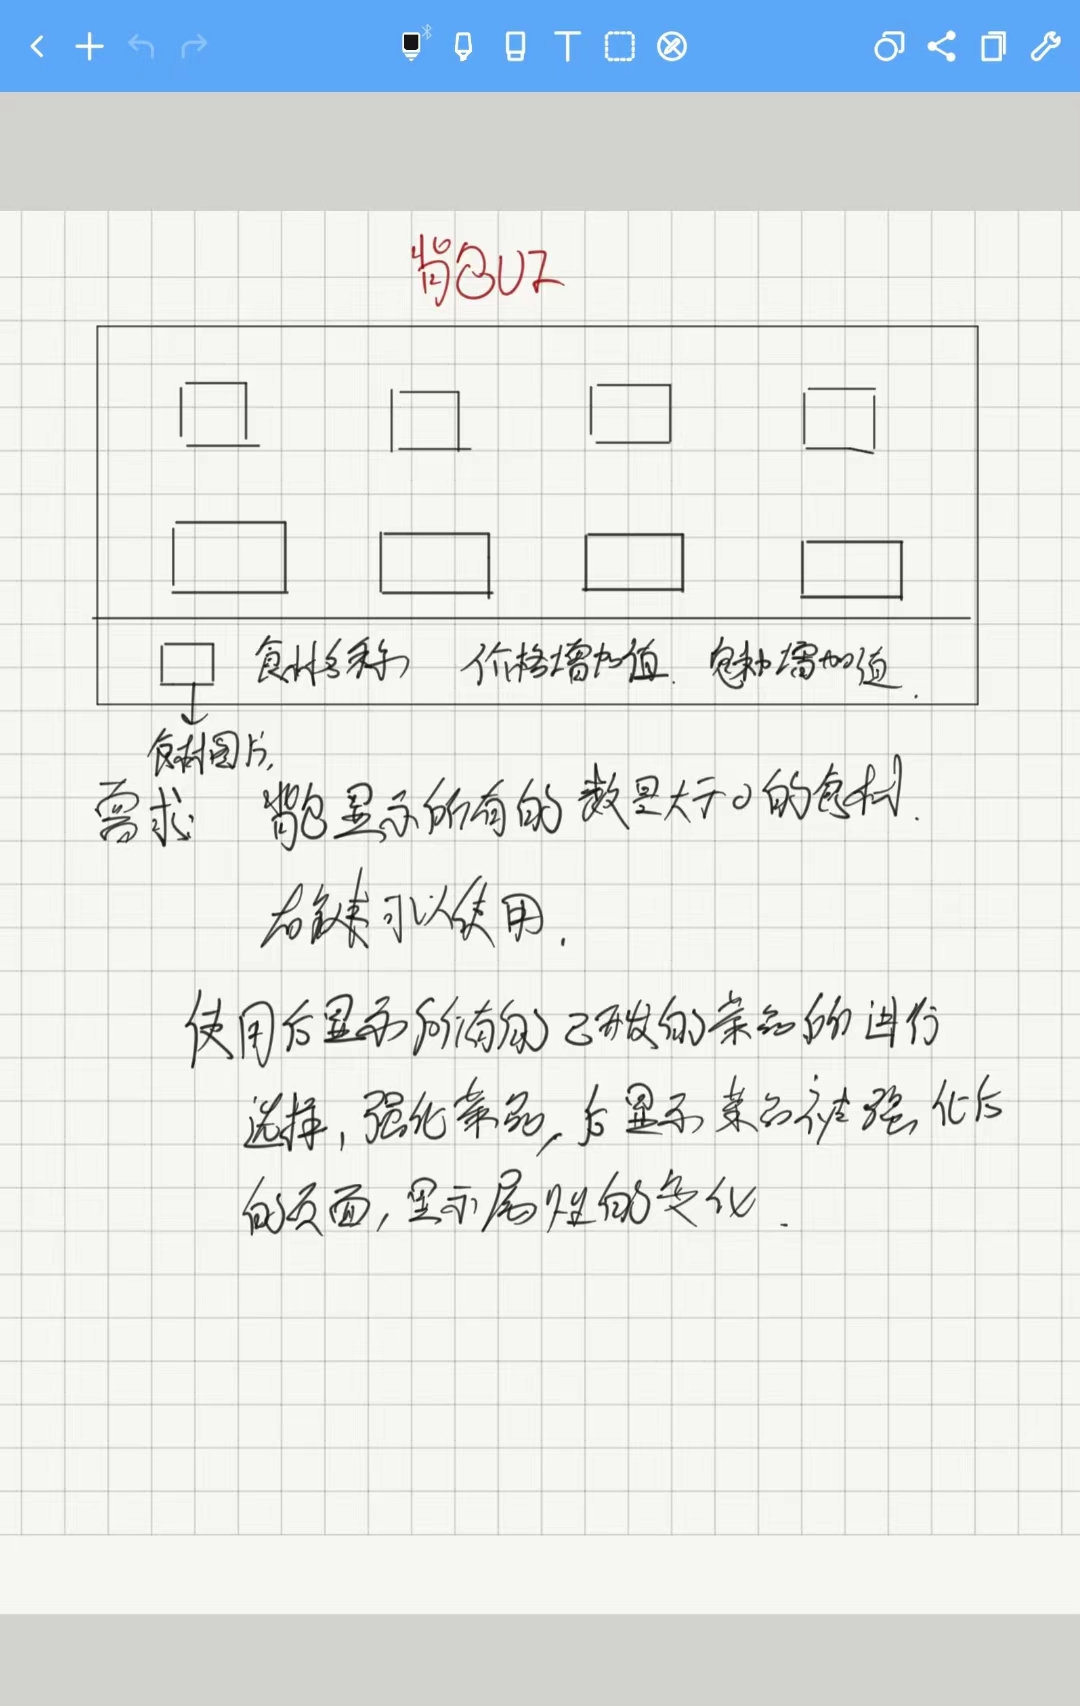 背包UI
食材名称 价格增加值. 增加值.
食材图片.
需求 背包显示所有的数量大于0的食材.
右键可以使用.
使用后显示所有的已开发的菜品的进行
选择,强化菜品,后显示菜品被强化后
的页面,显示属性的变化.